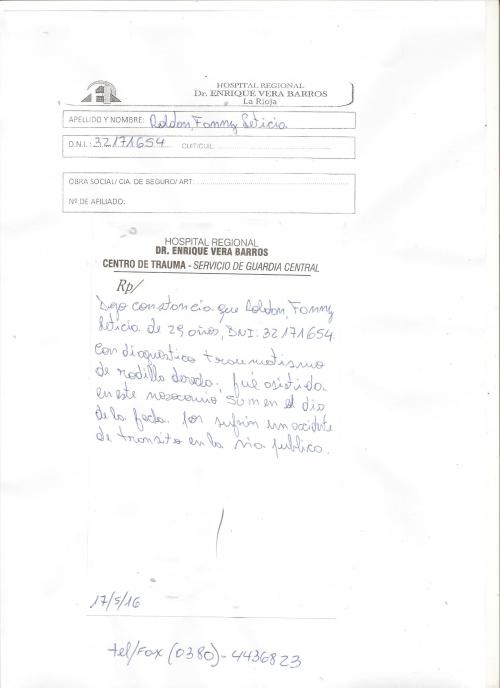 HOSPITAL REGIONAL
Dr. ENRIQUE VERA BARROS
La Rioja
APELLIDO Y NOMBRE: Roldon, Fanny Leticia
D.N.I.: 32171654 CUIT/CUIL:
OBRA SOCIAL/ CIA. DE SEGURO/ ART:
Nº DE AFILIADO:
HOSPITAL REGIONAL
DR. ENRIQUE VERA BARROS
CENTRO DE TRAUMA - SERVICIO DE GUARDIA CENTRAL
Rp/
Dejo constancia que Roldon, Fanny
Leticia de 29 años, DNI: 32171654.
Con diagnóstico traumatismo
de rodilla derecha; fué asistida
en este nosocomio en el dia
de la fecha. por sufrir un accidente
de transito en la via publica.
17/5/16
tel/Fax (0380)-4436823